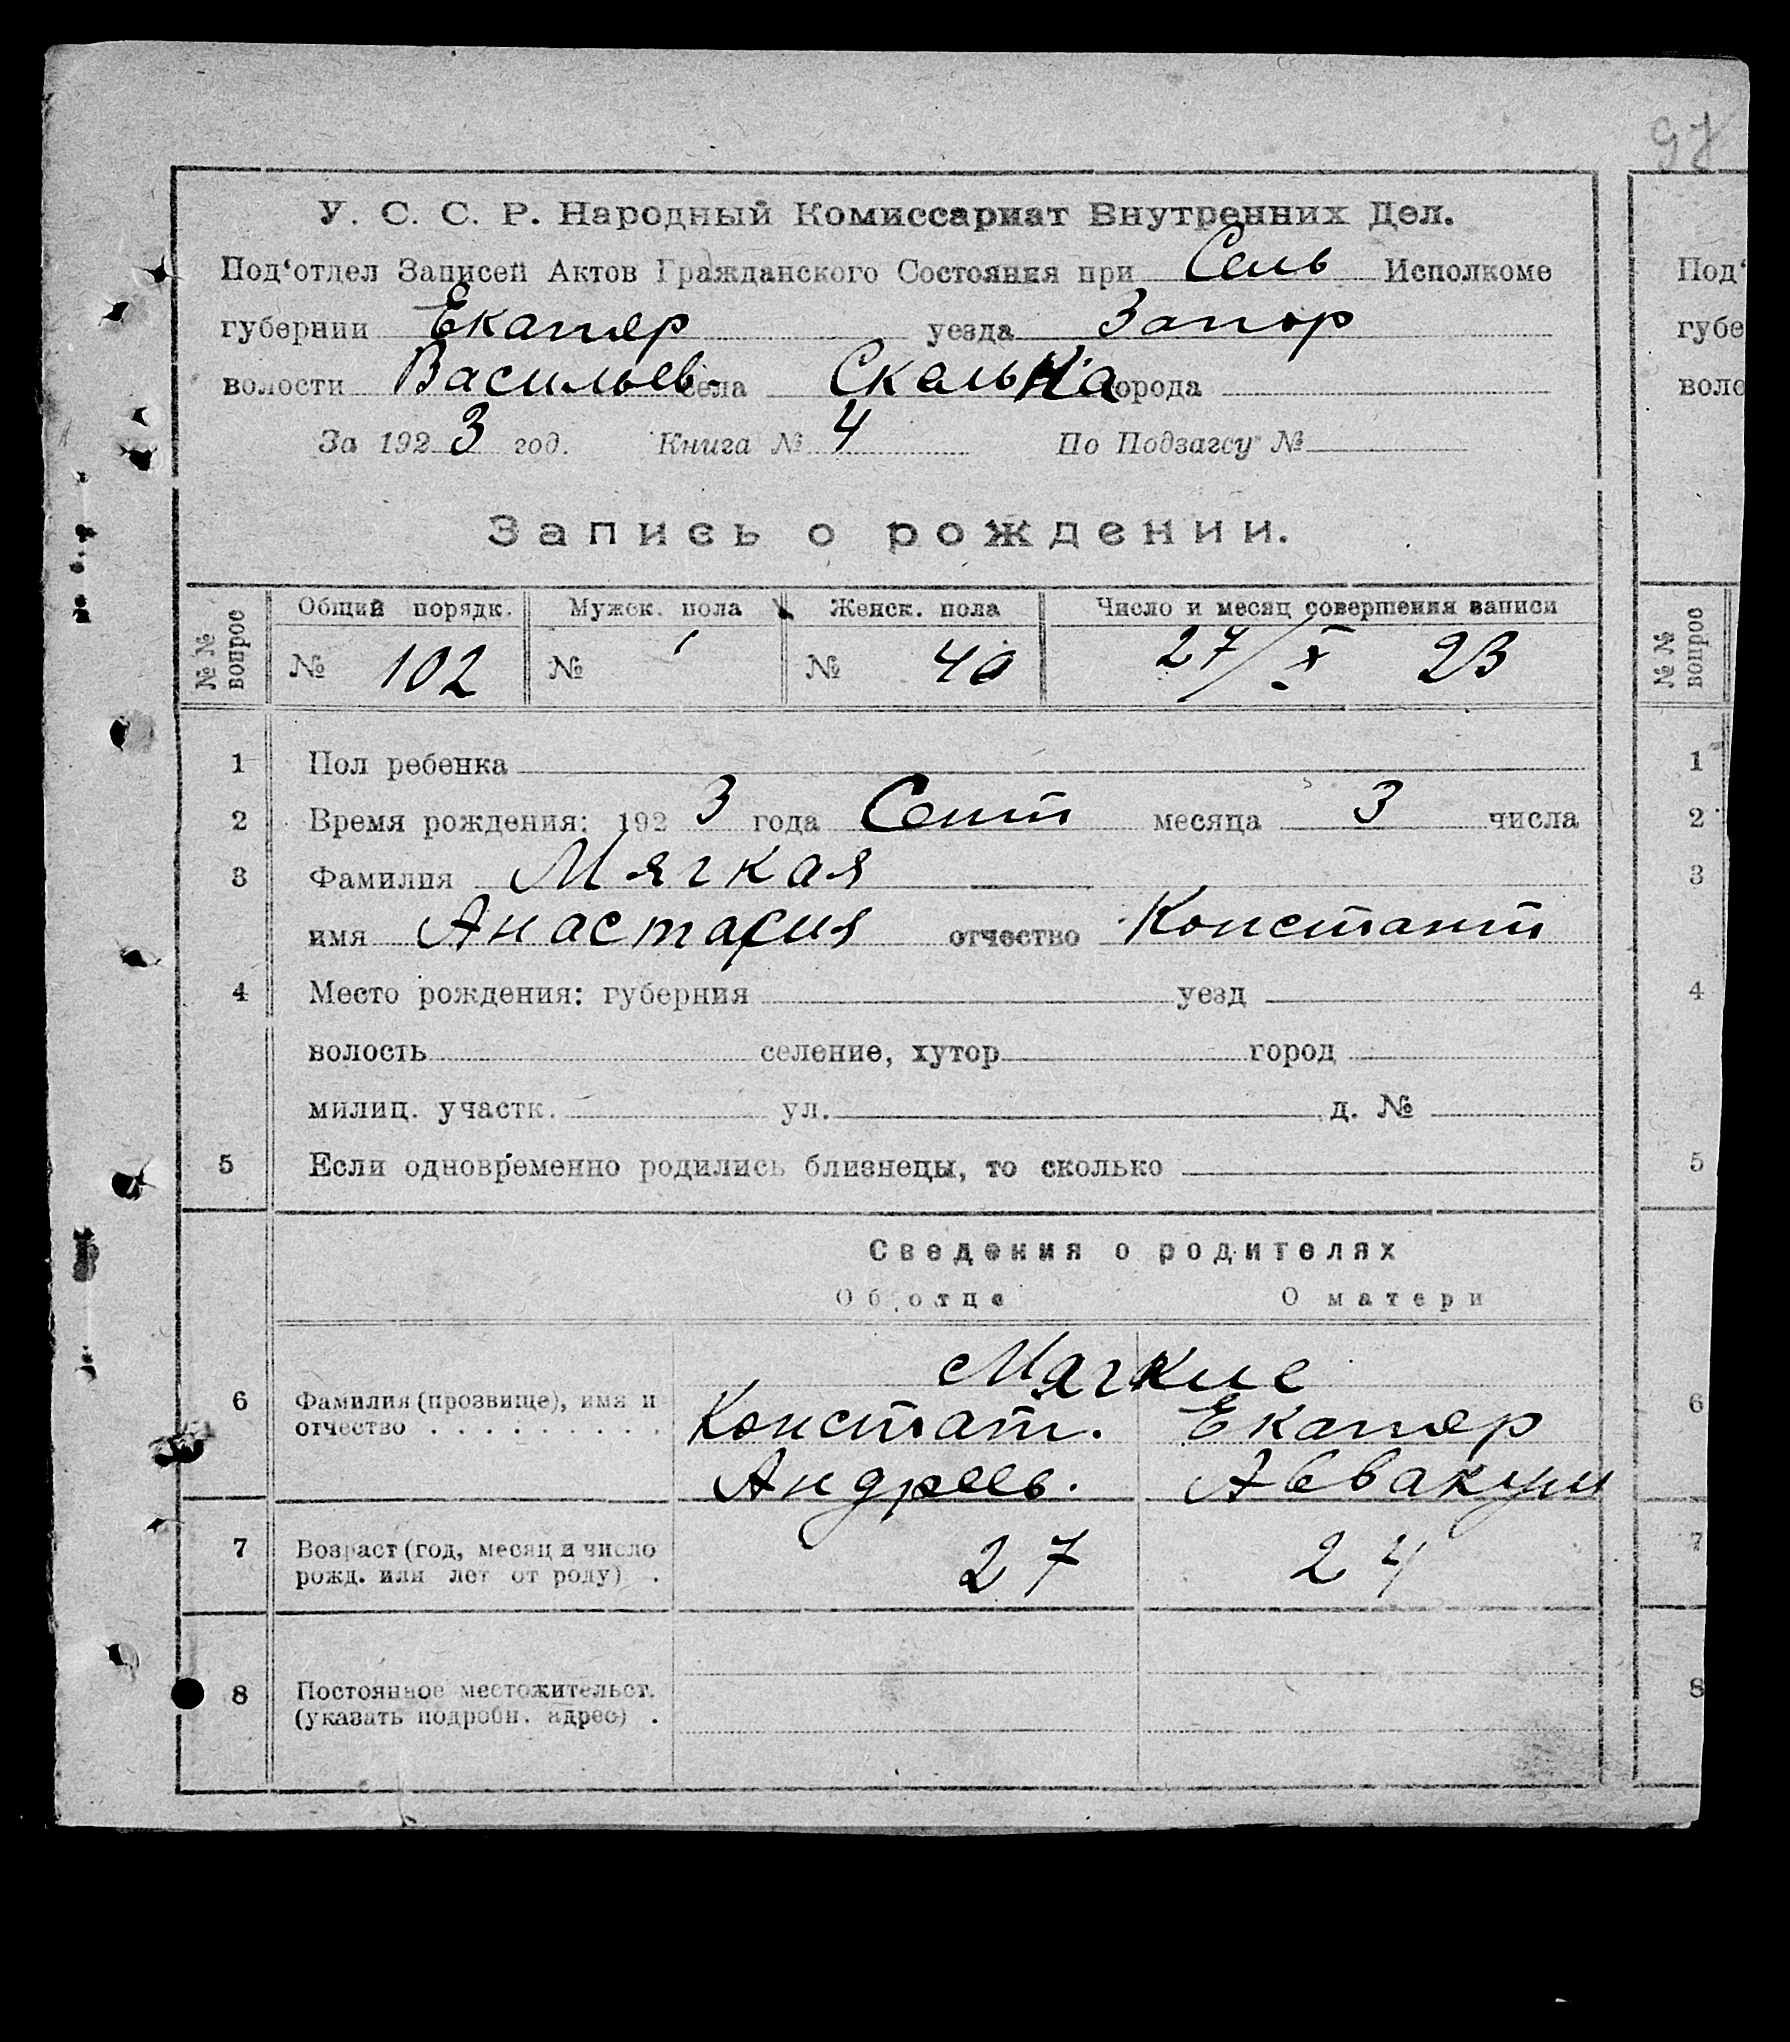 97
У. С. С. Р. Народный Комиссариат Внутренних Дел.
Под‘отдел Записей Актов Гражданского Состояния при Сель Исполкоме
губернии Екатер уезда Запор
волости Васильев. села Скалька города
За 1923 год. Книга № 4 По Подзагсу №
Запись о рождении.
№№ вопрос
Общий порядк. Мужск. пола Женск. пола Число и месяц совершения записи
№ 102 № № 40 27/X 23
1 Пол ребенка
2 Время рождения: 1923 года Сент месяца 3 числа
3 Фамилия Мягкая
имя Анастасия отчество Константи
4 Место рождения: губерния уезд
волость селение, хутор город
милиц. участк. ул. д. №
5 Если одновременно родились близнецы, то сколько
Сведения о родителях
Об отце О матери
Мягкие
6 Фамилия (прозвище), имя и
отчество . . . . . . . . . Констант. Екатер
Андреев. Аввакум
7 Возраст (год, месяц и число
рожд. или лет от роду) . 27 24
8 Постоянное местожительст.
(указать подробн. адрес) .
Под‘
губе
воло
№№ вопрос
1
2
3
4
5
6
7
8